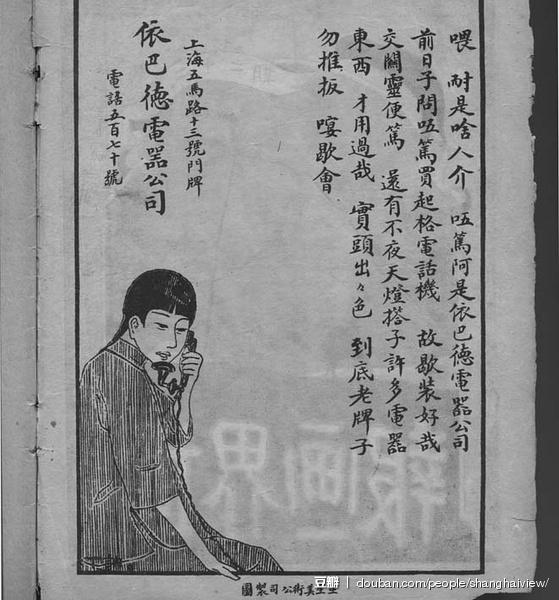 喂　耐是啥人介　㕶篤阿是依巴德電器公司
前日子問㕶篤買起格電話機　故歇裝好哉
交關靈便篤　還有不夜天燈搭子許多電器
東西　才用過哉　實頭出々色　到底老牌子
勿推扳　嗄歇會
上海五馬路十三號門牌
依巴德電器公司
電話五百七十號
生生美術公司製圖
報画界
豆瓣 | douban.com/people/shanghaiview/